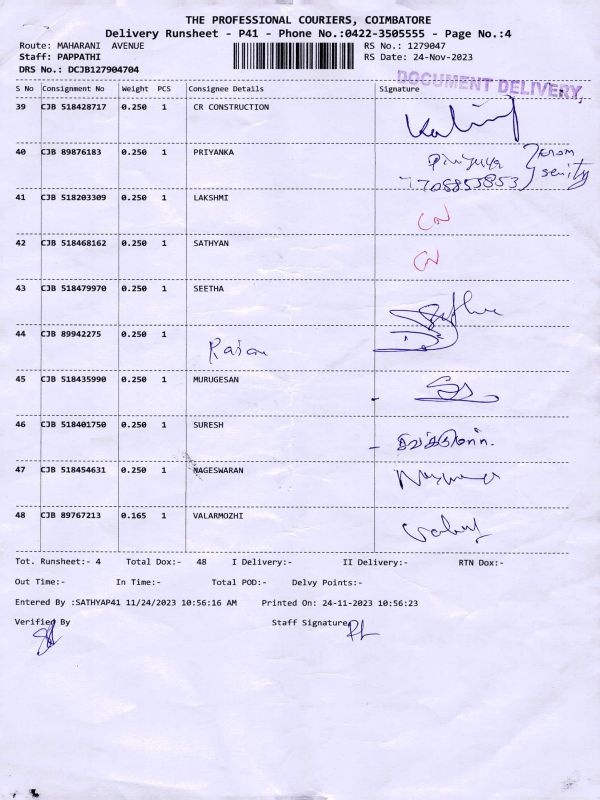 THE PROFESSIONAL COURIERS, COIMBATORE
Delivery Runsheet - P41 - Phone No.:0422-3505555 - Page No.:4
Route: MAHARANI AVENUE
RS No.: 1279047
Staff: PAPPATHI
RS Date: 24-Nov-2023
DRS No.: DCJB127904704
DOCUMENT DELIVERY,
S No Consignment No Weight PCS Consignee Details Signature
39 CJB 518428717 0.250 1 CR CONSTRUCTION
40 CJB 89876183 0.250 1 PRIYANKA
7708855853
41 CJB 518203309 0.250 1 LAKSHMI
42 CJB 518468162 0.250 1 SATHYAN
43 CJB 518479970 0.250 1 SEETHA
44 CJB 89942275 0.250 1
45 CJB 518435990 0.250 1 MURUGESAN
46 CJB 518401750 0.250 1 SURESH
47 CJB 518454631 0.250 1 NAGESWARAN
48 CJB 89767213 0.165 1 VALARMOZHI
Tot. Runsheet:- 4 Total Dox:- 48 I Delivery:- II Delivery:- RTN Dox:-
Out Time:- In Time:- Total POD:- Delvy Points:-
Entered By :SATHYAP41 11/24/2023 10:56:16 AM Printed On: 24-11-2023 10:56:23
Verified By Staff Signature